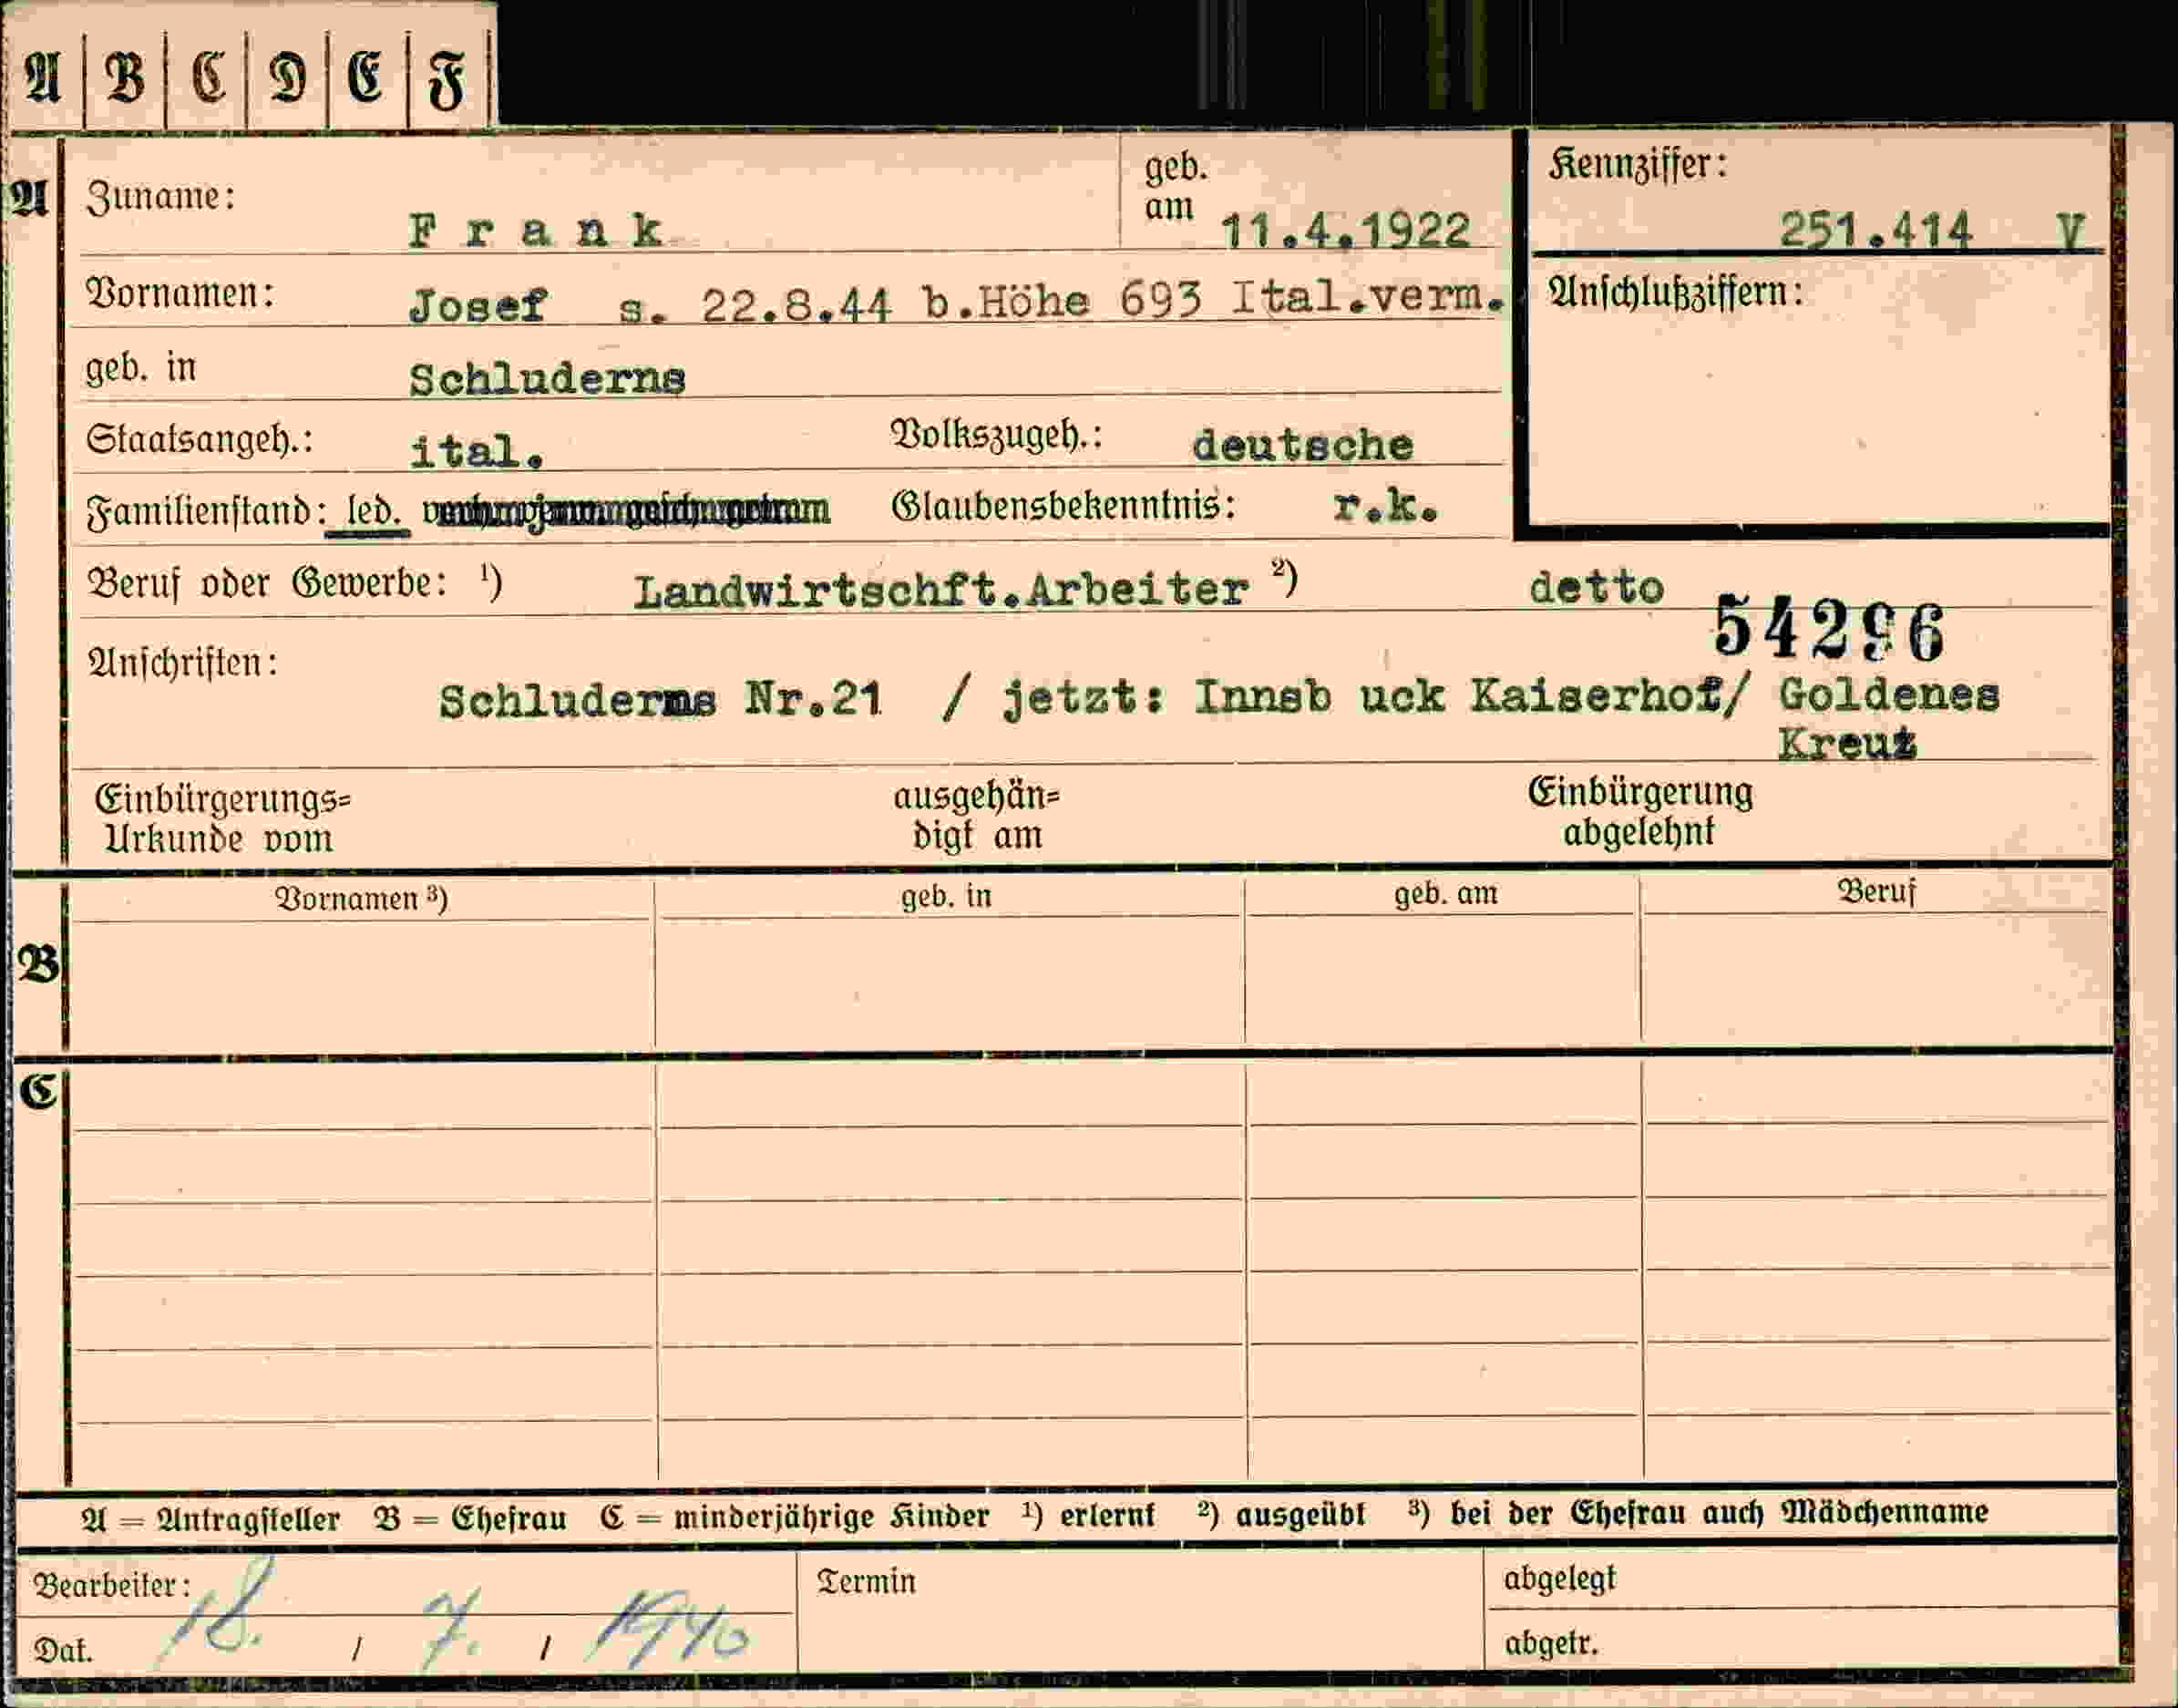 A B C D E F
A Zuname: Frank geb. am 11.4.1922 Kennziffer: 251.414 V
Vornamen: Josef s. 22.8.44 b.Höhe 693 Ital.verm. Anschlußziffern:
geb. in Schluderns
Staatsangeh.: ital. Volkszugeh.: deutsche
Familienstand: led. Glaubensbekenntnis: r.k.
Beruf oder Gewerbe: ¹) Landwirtschft.Arbeiter ²) detto
54296
Anschriften: Schluderns Nr.21 / jetzt: Innsb uck Kaiserhof/ Goldenes
Kreuz
Einbürgerungs= ausgehän= Einbürgerung
Urkunde vom digt am abgelehnt
Vornamen ³) geb. in geb. am Beruf
B
C
A = Antragsteller B = Ehefrau C = minderjährige Kinder ¹) erlernt ²) ausgeübt ³) bei der Ehefrau auch Mädchenname
Bearbeiter: Termin abgelegt
Dat. 18. / 7. / 1940 abgetr.